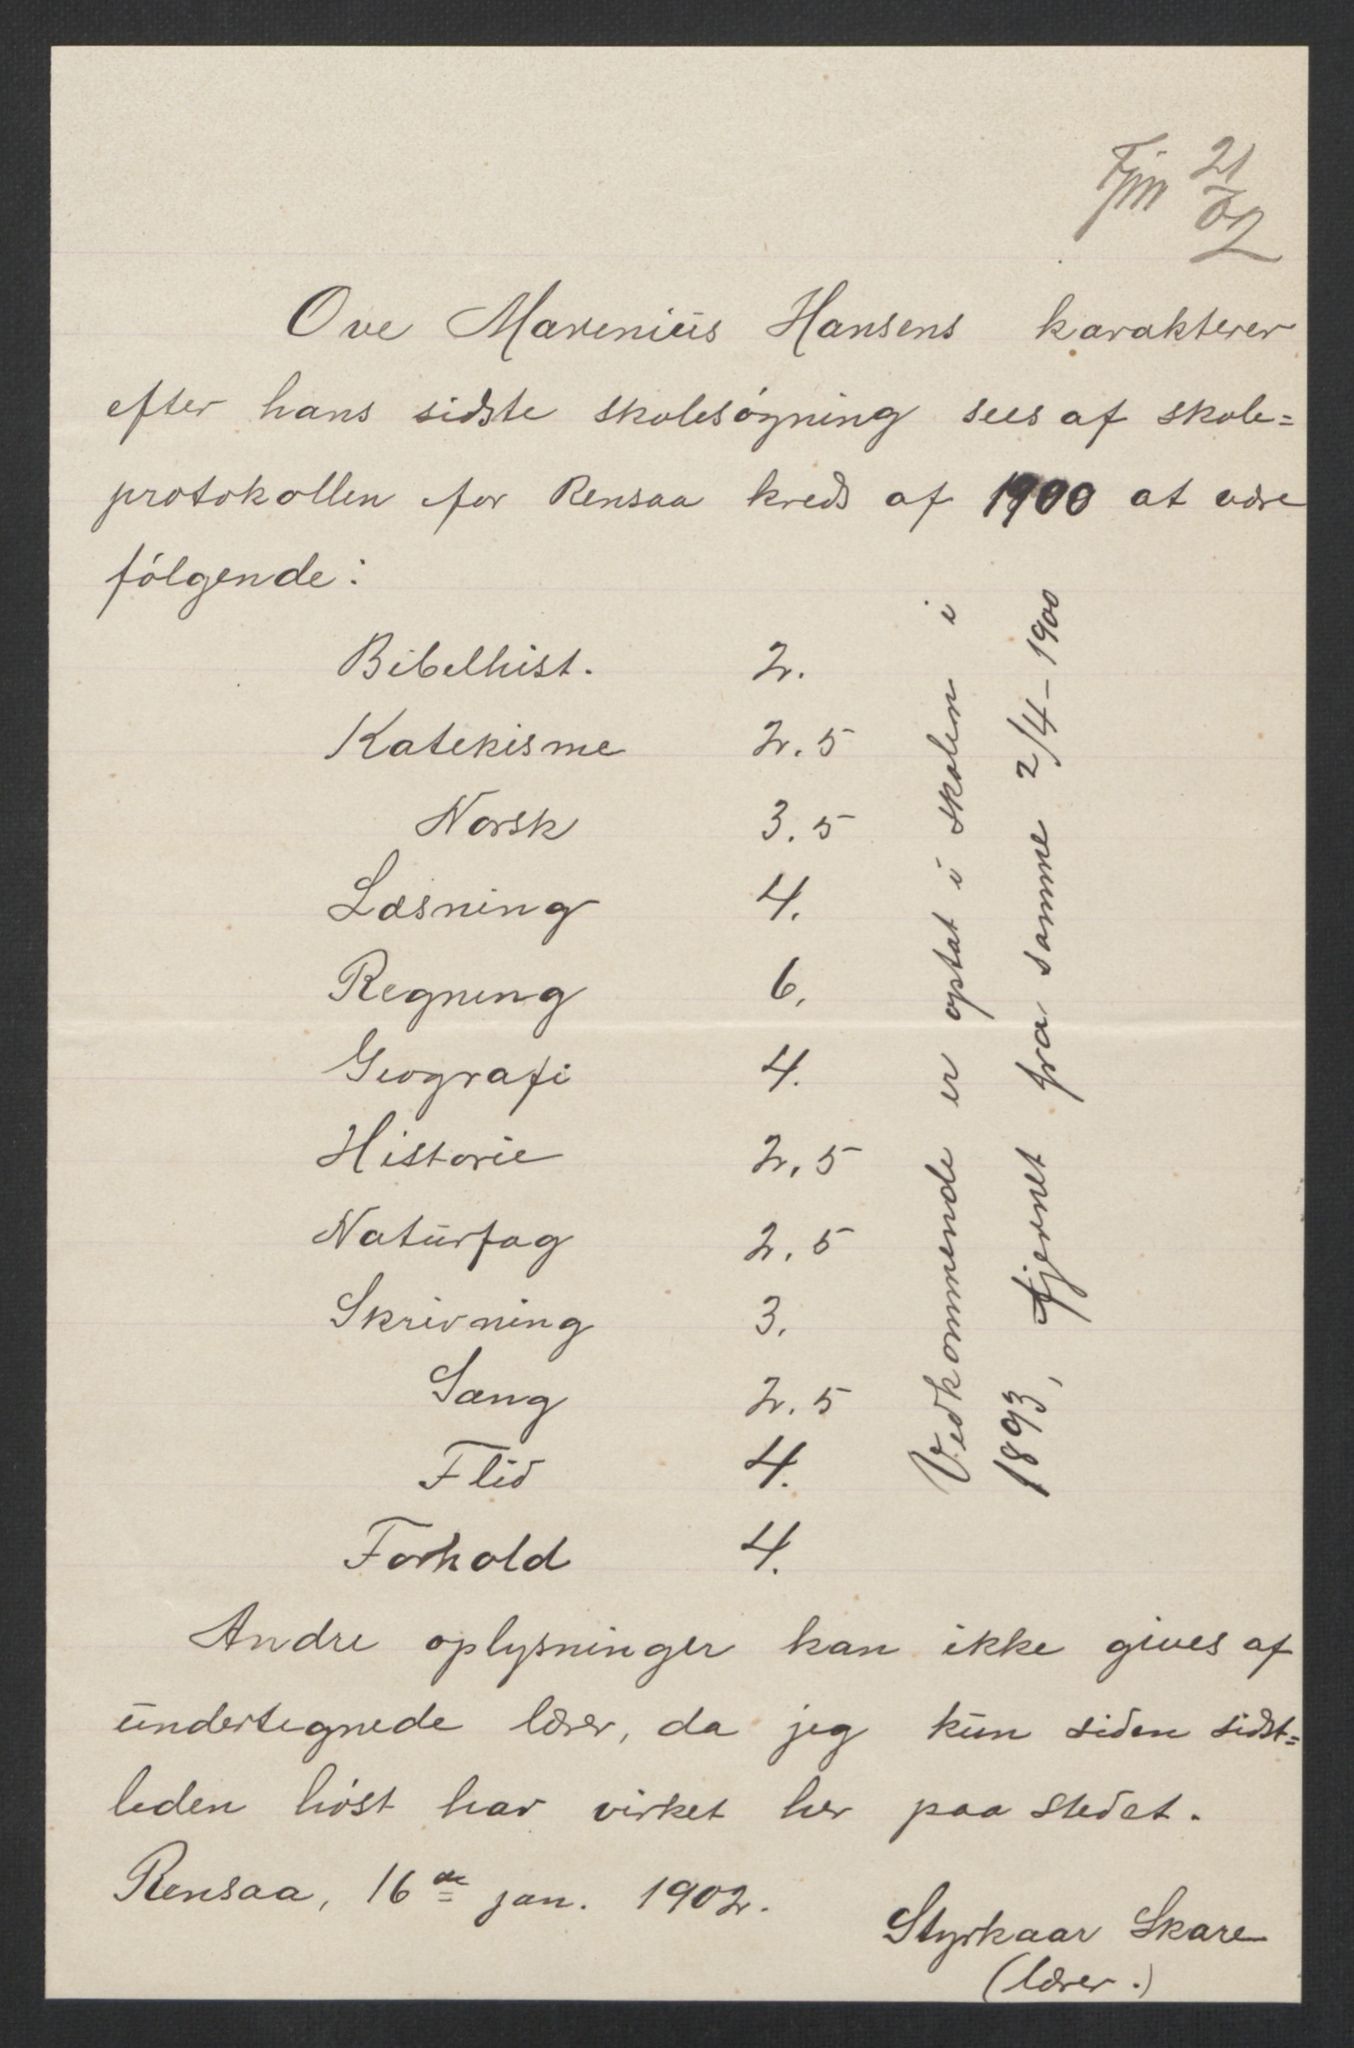 21
02
Ove Marenius Hansens karakterer
efter hans sidste skolesøgning sees af skole=
protokollen for Rensaa kreds af 1900 at være
følgende:
Bibelhist. 2.
Katekisme 2.5
Norsk 3.5
Læsning 4.
Regning 6.
Geografi 4.
Historie 2,5
Naturfag 2.5
Skrivning 3.
Sang 2.5
Flid 4.
Forhold 4.
Vedkommende er optat i skolen i
1893, fjernet fra samme 2/4-1900
Andre oplysninger kan ikke gives af
undertegnede lærer, da jeg kun siden sidst=
leden høst har virket her paa stedet.
Rensaa, 16de jan. 1902.
Styrkaar Skare
(lærer.)